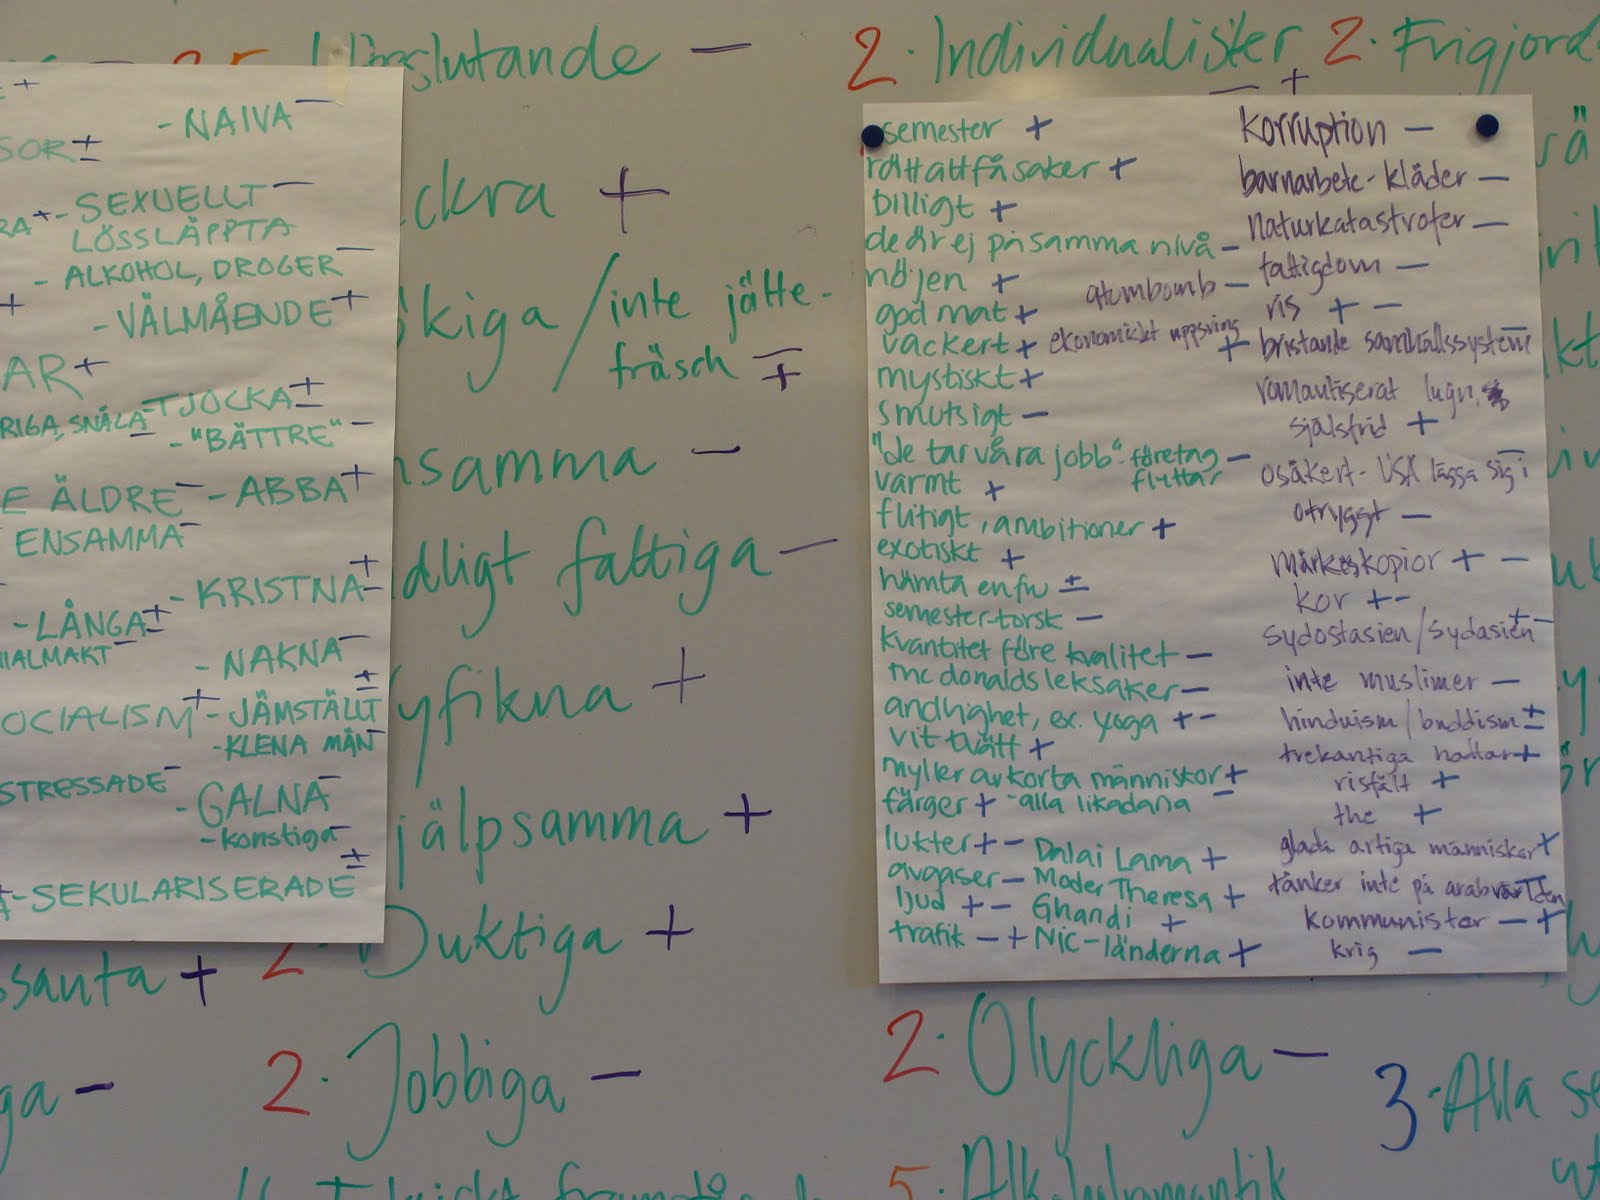 slutande —
2. Individualister — +
2. Frigjord
- NAIVA —
SOR ±
- SEXUELLT —
LÖSSLÄPPTA
- ALKOHOL, DROGER —
- VÄLMÅENDE +
AR +
RIGA, SNÅLA —
- TJOCKA ±
- "BÄTTRE" —
E ÄLDRE —
- ABBA +
ENSAMMA —
- KRISTNA + —
- LÅNGA ±
IALMAKT —
- NAKNA —
OCIALISM +
- JÄMSTÄLLT ±
- KLENA MÄN —
STRESSADE —
- GALNA —
- konstiga —
- SEKULARISERADE ±
ckra +
kiga / inte jätte-
fräsch ∓
nsamma —
dligt fattiga —
yfikna +
jälpsamma +
2. Duktiga +
ssanta +
ga —
2. Jobbiga —
semester +
rätt att få saker +
billigt +
de är ej på samma nivå —
nöjen +
god mat +
vackert +
mystiskt +
smutsigt —
"de tar våra jobb" - företag —
flyttar
varmt +
flitigt, ambitioner +
exotiskt +
hämta en fru ±
semester-torsk —
kvantitet före kvalitet —
mc donalds leksaker —
andlighet, ex. yoga + —
vit tvätt +
myller av korta människor +
färger + - alla likadana —
lukter + —
avgaser —
ljud + —
trafik — +
Dalai Lama +
Moder Theresa +
Ghandi +
NIC-länderna +
korruption —
barnarbete - kläder —
naturkatastrofer —
fattigdom —
atombomb —
ris + —
ekonomiskt uppsving +
bristande samhällssystem —
romantiserat lugn,
själsfrid +
osäkert - USA lägga sig i —
otryggt —
märkeskopior + —
kor + -
Sydostasien/Sydasien + -
inte muslimer —
hinduism/buddism ±
trekantiga hattar +
risfält +
the +
glada artiga människor +
tänker inte på arabvärlden —
kommunister — +
krig —
2. Olyckliga —
3. Alla se
5.